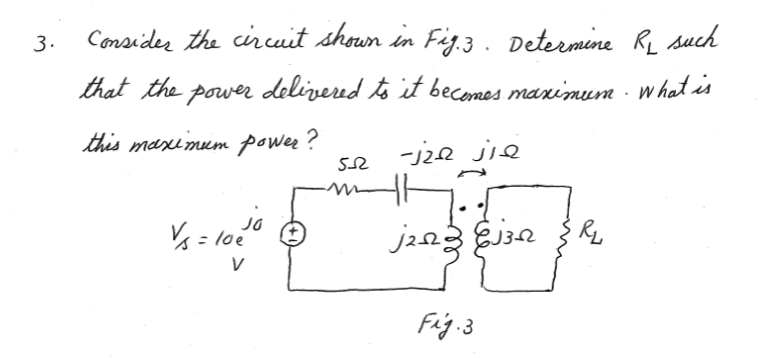 3. Consider the circuit shown in Fig.3. Determine R_L such
that the power delivered to it becomes maximum. What is
this maximum power?
5Ω -j2Ω j1Ω
V_s = 10e^{j0} V
j2Ω j3Ω R_L
Fig.3